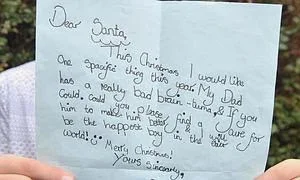 Dear Santa,
This Christmas I would like
One specific thing this year. My Dad
has a really bad brain-tumor & If you
Could, Could you please find a cure for
him to make him better, & I will
be the happest boy in the
world! Merry Christmas!
Yours Sincerely,